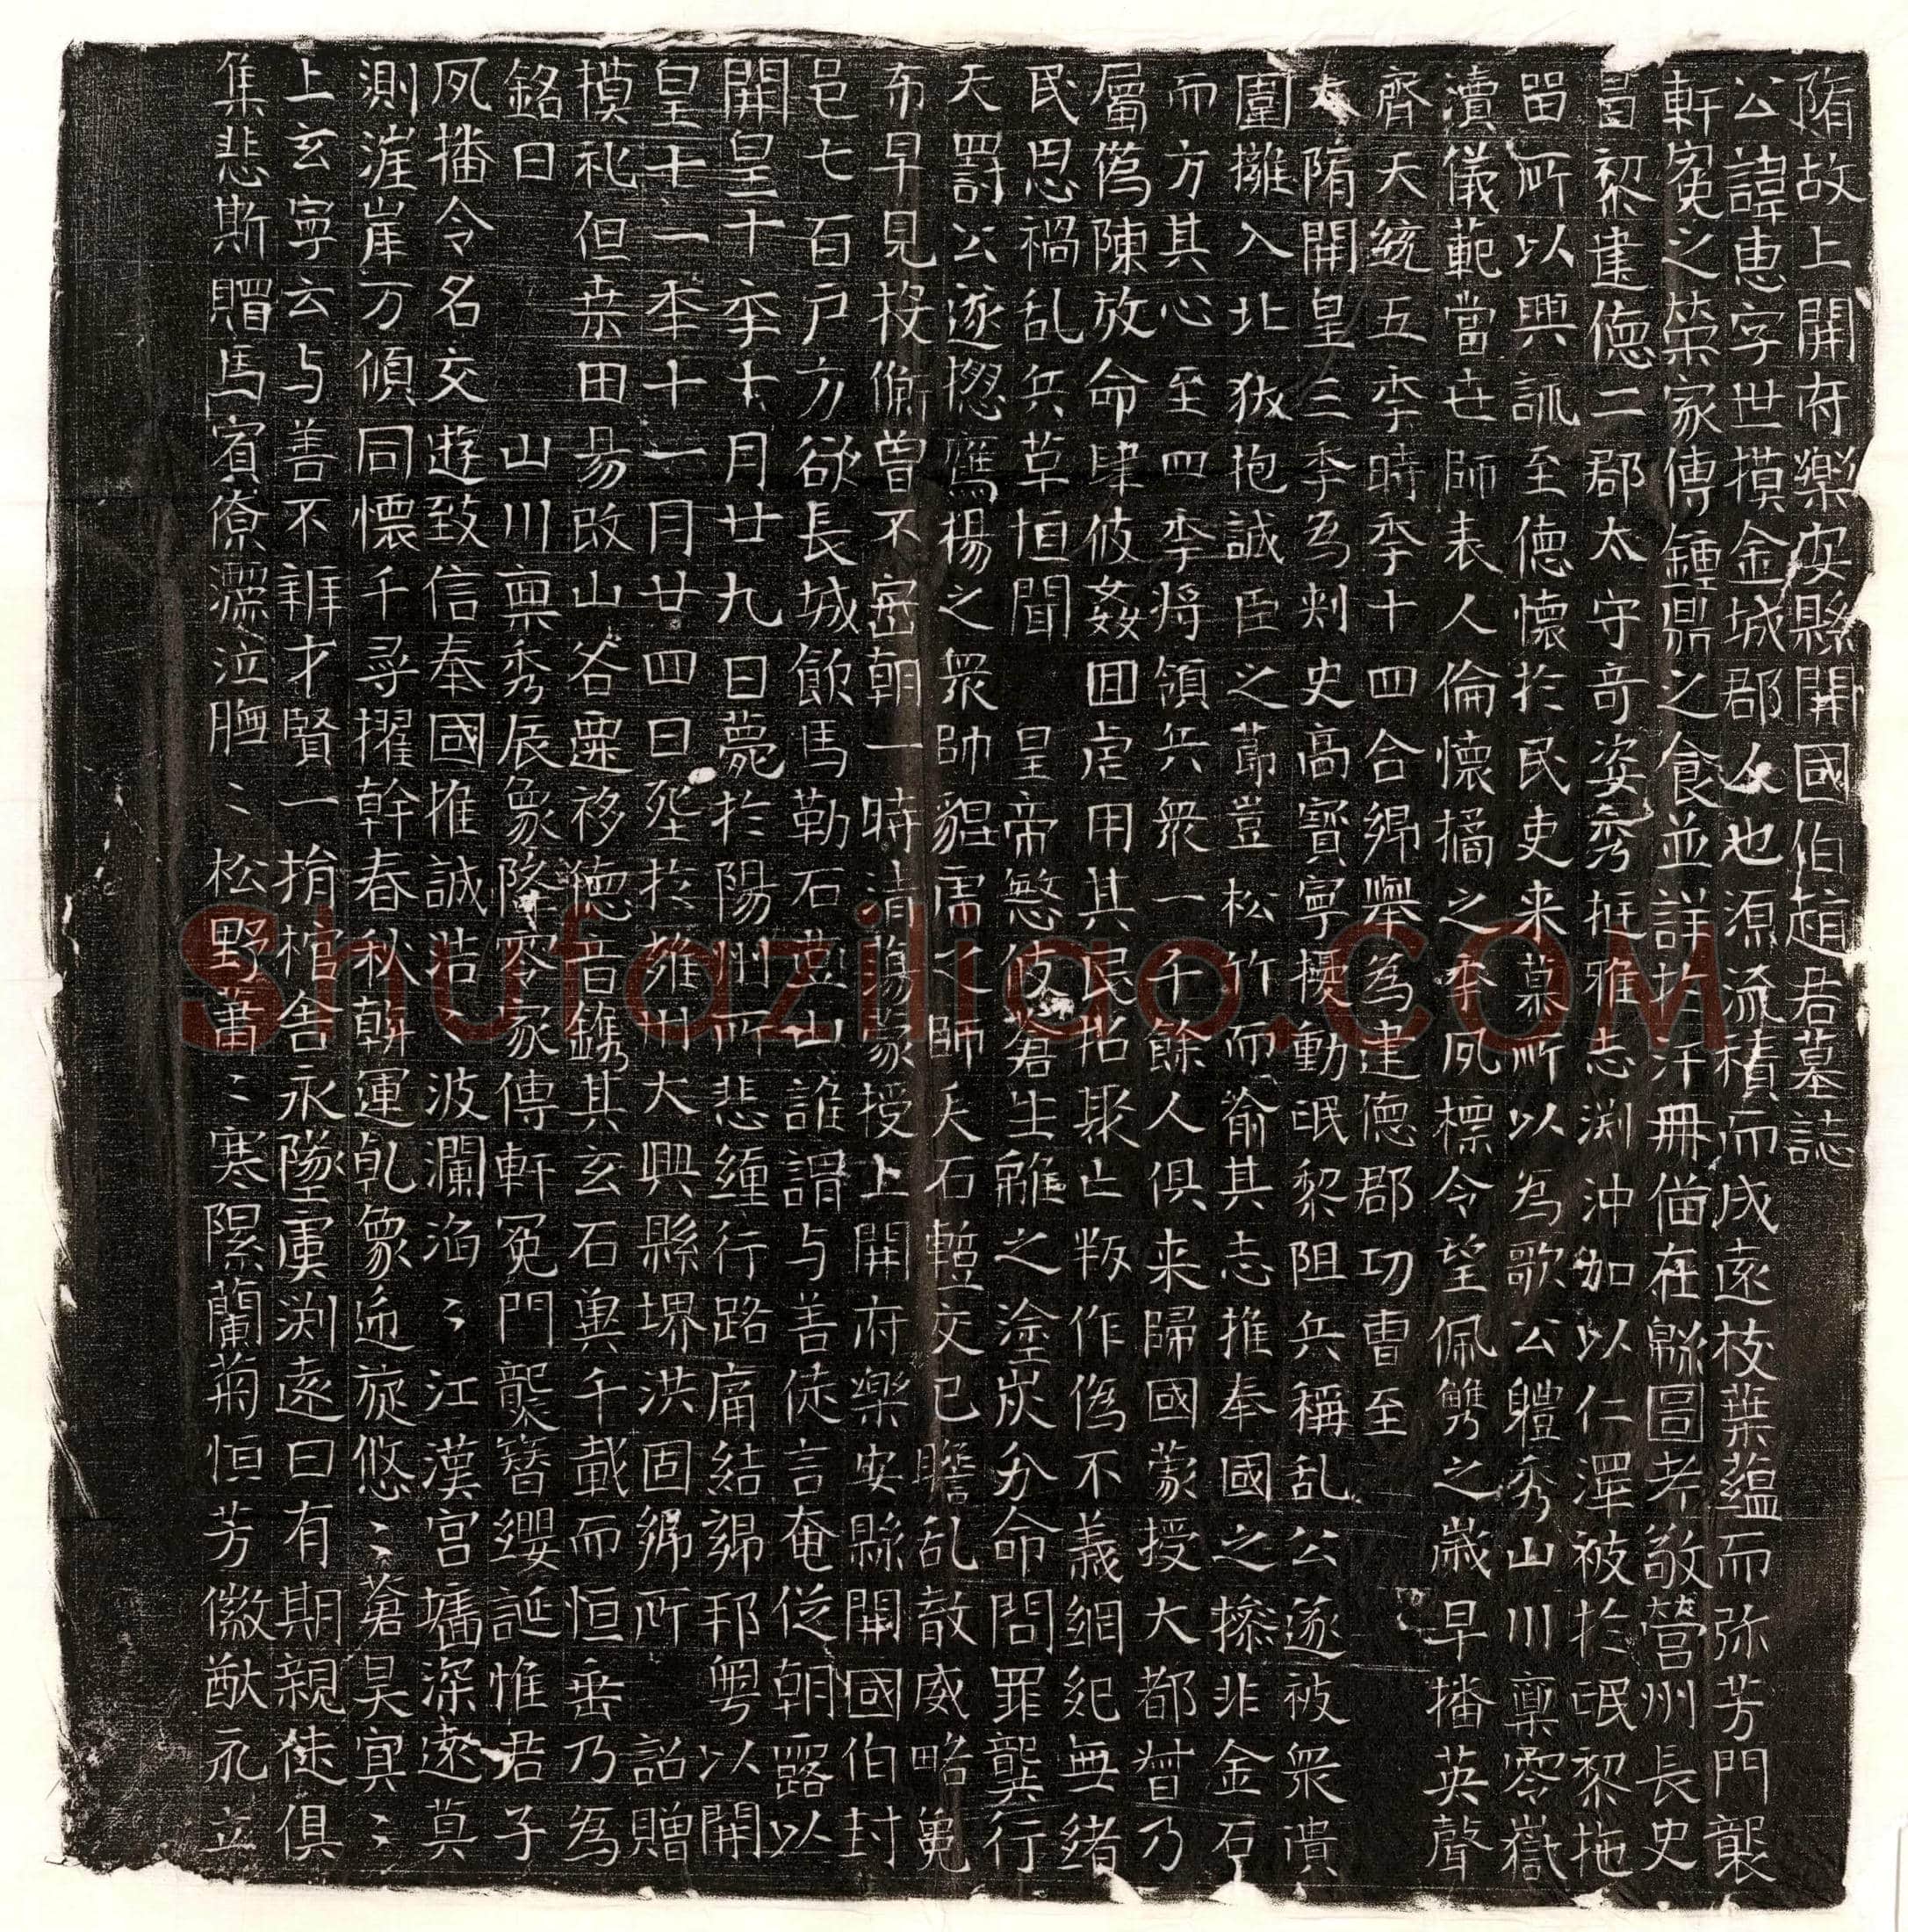 隋故上開府樂安縣開國伯趙君墓誌
公諱惠字世摸金城郡人也源流積而成遠枝葉蘊而弥芳門襲
軒冕之榮家傳鍾鼎之食並詳於汗冊备在緜圖考敬營州長史
昌黎建德二郡太守奇姿秀挺雅志渊沖加以仁澤被於氓黎拖
留所以興詠至德懷於民吏来慕所以為歌公軆秀山川稟零嶽
瀆儀範當世師表人倫懷橘之秊夙標令望佩觿之歲早播英聲
齊天統五秊時秊十四合鄉舉為建德郡功曹至
大隋開皇三秊為刾史高寶寧擾動氓黎阻兵稱乱公遂被衆潰
圍擁入北狄抱誠臣之節豈松竹而喻其志推奉國之操非金石
而方其心至四秊将領兵衆一千餘人俱来歸國蒙授大都督乃
屬僞陳放命肆彼姦回虐用其民招聚亡叛作僞不義網紀無緒
民思禍乱兵草恒聞皇帝愍彼蒼生離之塗炭分命問罪龔行
天罸公遂摠鷹楊之衆帥貔虎之師矢石蹔交已聻乱散威略冕
布早見投衡曽不密朝一時清蕩蒙授上開府樂安縣開國伯封
邑七百户方欲長城飲馬勒石燕山誰謂与善徒言奄從朝露以
開皇十秊七月廿九日薨於陽州所悲纏行路痛結鄉邦粤以開
皇十一秊十一月廿四日窆於雍州大興縣堺洪固鄉所詔贈
摸礼但桒田易改山谷虞移德音鐫其玄石冀千載而恒垂乃為
銘曰山川稟秀辰象降零家傳軒冕門襲簪纓誕惟君子
夙播令名交遊致信奉國推誠浩〻波瀾滔〻江漢宮墻深遠莫
測涯岸万傾同懷千尋擢幹春秋斡運乹象迊旋悠〻蒼昊冥〻
上玄寧云与善不辨才賢一捐棺舎永墜虞渊遠日有期親徒俱
集悲斯賵馬賓僚灑泣膴〻松野菑〻寒隰蘭菊恒芳徽猷永立